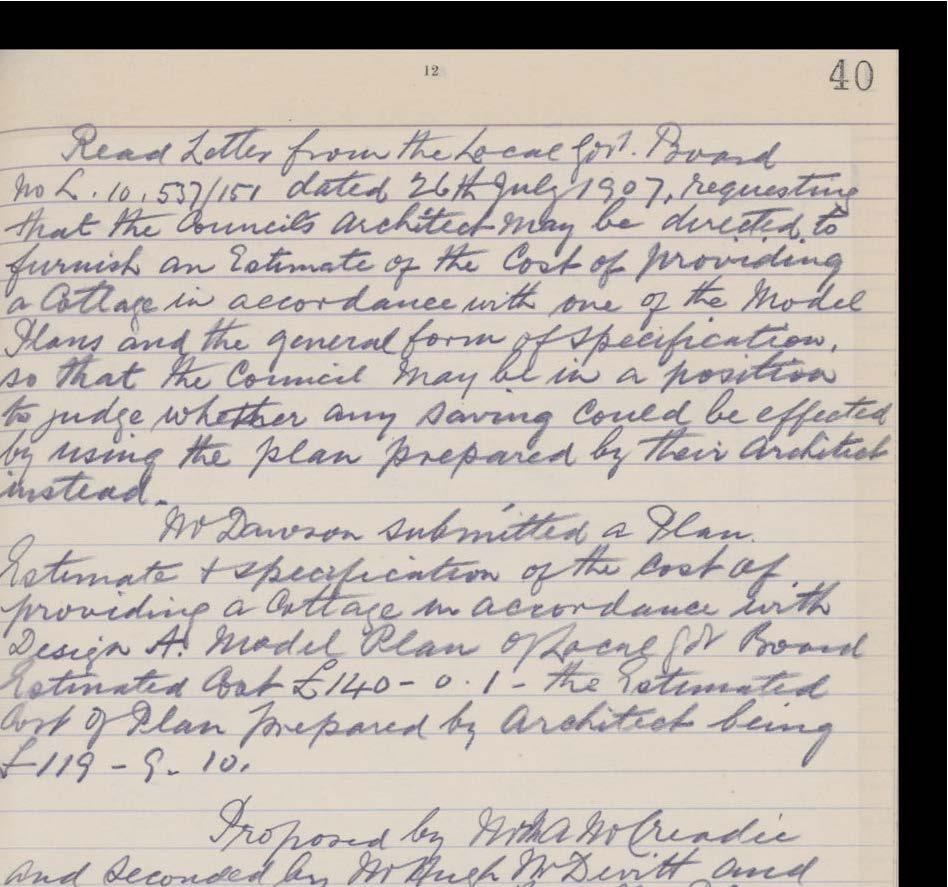 12
40
Read Letter from the Local Govt. Board
No L. 10,537/151 dated 26th July 1907, requesting
that the Councils Architect may be directed to
furnish an Estimate of the Cost of providing
a Cottage in accordance with one of the Model
Plans and the general form of Specification,
so that the Council may be in a position
to judge whether any saving could be effected
by using the plan prepared by their Architect
instead.
Mr Dawson submitted a Plan.
Estimate & specification of the Cost of
providing a Cottage in accordance with
Design A. Model Plan of Local Govt Board
Estimated Cost £140-0.1- the Estimated
Cost of Plan prepared by Architect being
£119-9-10.
Proposed by Mr McCreadie
and seconded by Mr Hugh McDevitt and